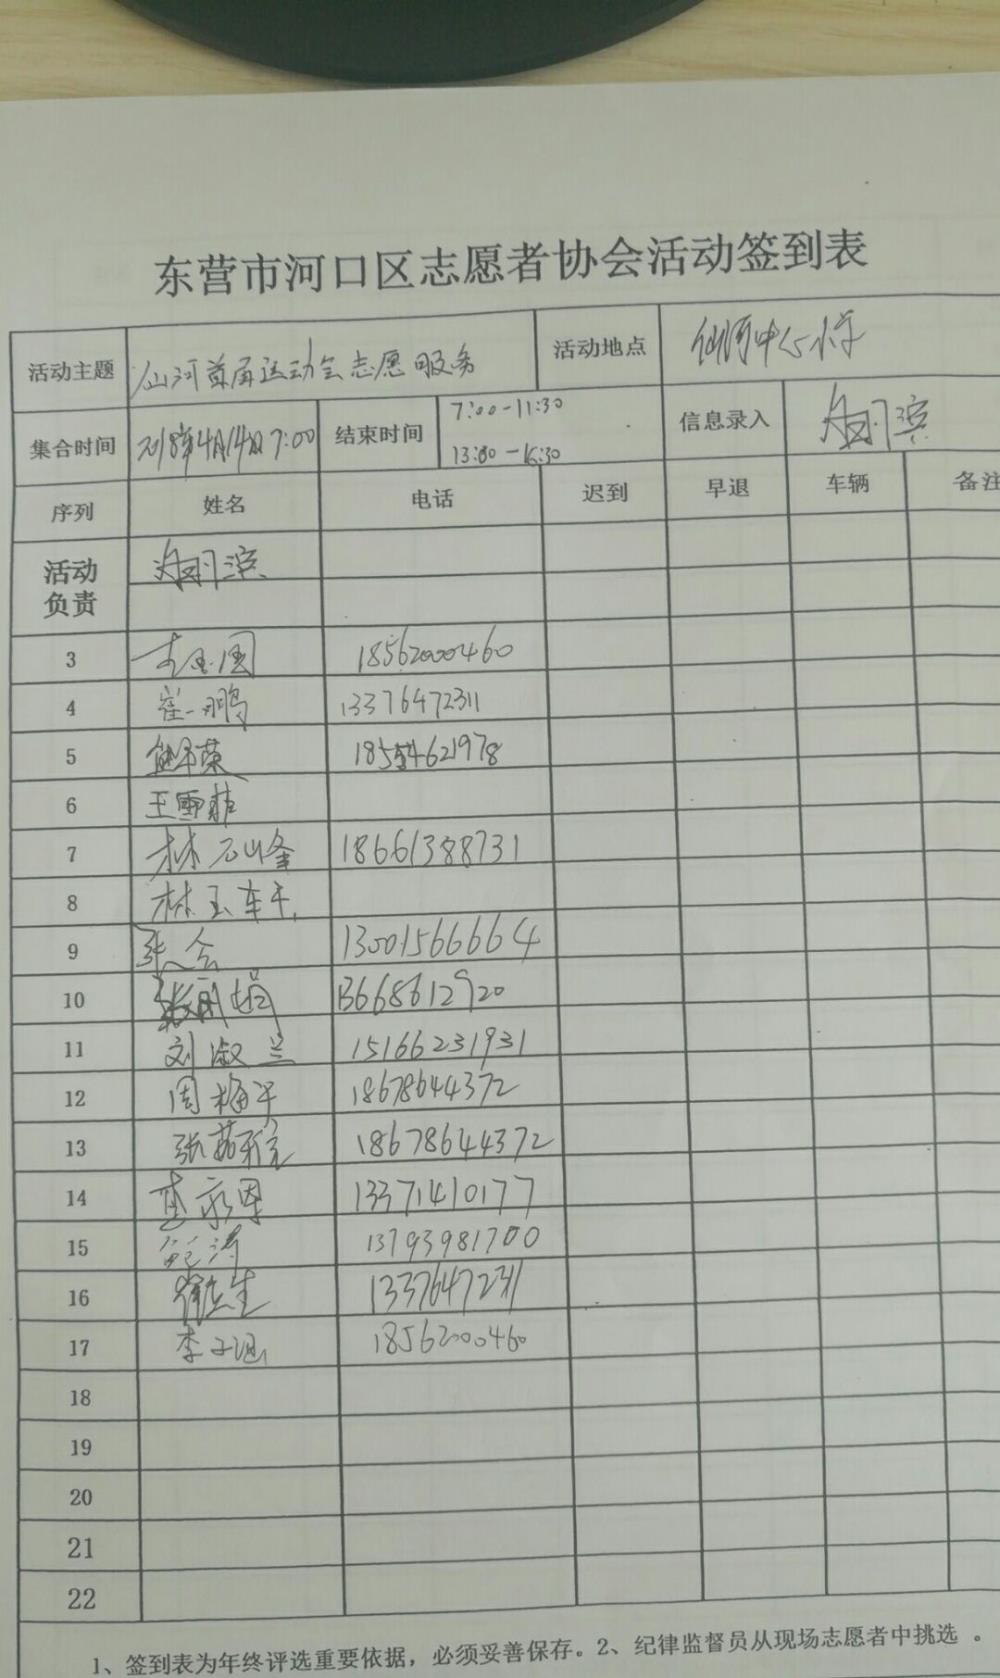 东营市河口区志愿者协会活动签到表
活动主题 仙河首届运动会志愿服务 活动地点 仙河中心小学
集合时间 2018年4月14日7:00 结束时间 7:00-11:30 13:00-16:30 信息录入
序列 姓名 电话 迟到 早退 车辆 备注
活动负责
3 18562000460
4 崔鹏 13376472311
5 18554621978
6 王雪菲
7 林石峰 18661388731
8 林玉
9 张会 13001566664
10 张丽娟 13668612920
11 刘淑兰 15166231931
12 周梅平 18678644372
13 张 18678644372
14 13371410177
15 13793981700
16 13376472311
17 李子涵 18562000460
18
19
20
21
22
1、签到表为年终评选重要依据，必须妥善保存。2、纪律监督员从现场志愿者中挑选 。